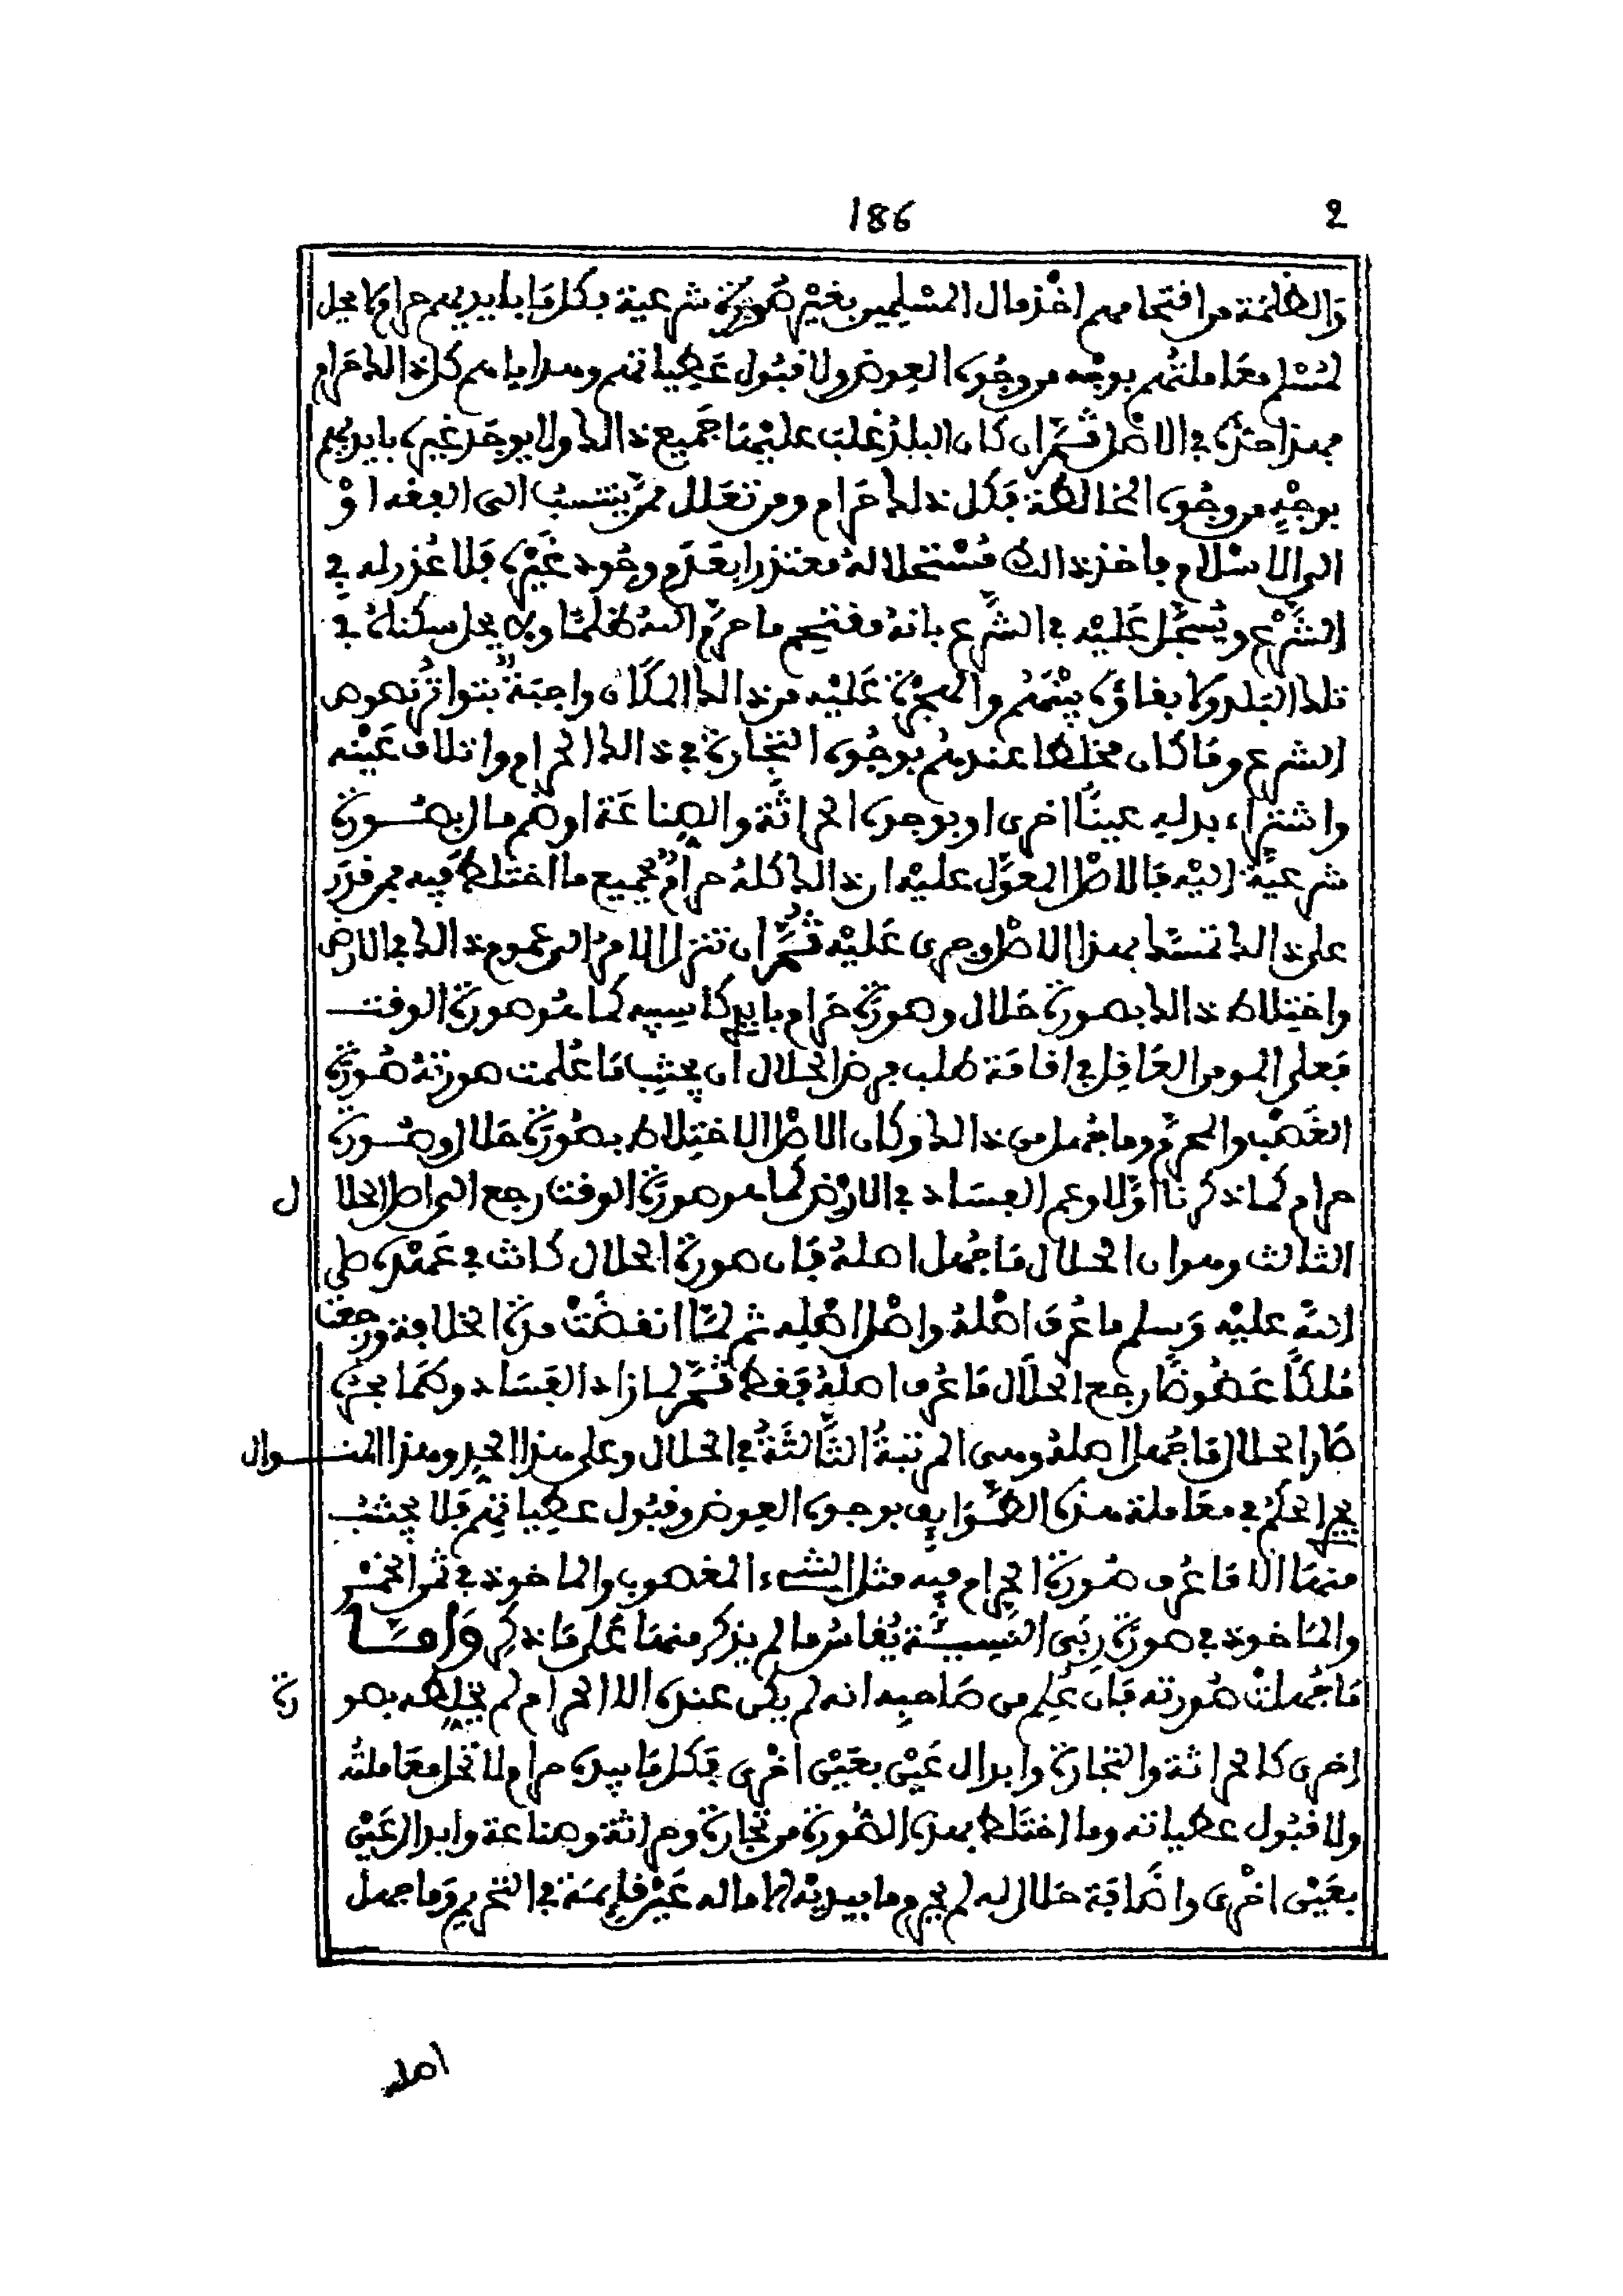 186 2
والظلمة من اقتحامهم اخذ مال المسلمين بغير صورة شرعية فكل ما بايديهم حرام لا يحل
لمسلم معاملتهم بوجه من وجوه العوض ولا قبول عطياتهم وهداياهم كل ذالك حرام
فهذا حده في الاصل ثم ان كان البلد غلب عليها جميع ذالك ولا يوجد غيره بايديهم
بوجه من وجوه المخالطة فكل ذلك حرام ومن تعلل ممن ينتسب الى الفقه او
الى الاسلام باخذ ذالك مستحلا له معتذرا بعدم وجود غيره فلا عذر له في
الشرع ويسجل عليه في الشرع بانه مقتحم ما حرم الله ظلما ولا يحل سكناه في
تلك البلد ولا بقاؤه بينهم والهجرة عليه من ذالك المكان واجبة بتواتر نصوص
الشرع وما كان مخلطا عندهم بوجوه التجارة في ذالك الحرام واتلاف عينه
واشتراء بدله عينا اخرى او بوجوه الحراثة والصناعة او ضم مال بصورة
شرعية اليه فالاصل المعول عليه ان ذالك كله حرام جميع ما اختلط فيه فمن قدر
على ذالك تمسك بهذا الاصل وجرى عليه ثم ان تنزل الامر الى عموم ذالك في الارض
واختلاط ذالك بصورة حلال وصورة حرام بايد كاسبيه كما هو صورة الوقت
فعلى المومن العاقل في اقامة طلب فرض الحلال ان يجتنب ما علمت صورته صورة
الغصب والمحرم وما جهل من ذالك وكان الاصل الاختلاط بصورة حلال وصورة
حرام كما ذكرنا اولا وعم الفساد في الارض كما هو صورة الوقت رجع الى اصل الحلال
الثالث وهو ان الحلال ما جهل اصله فان صورة الحلال كانت في عهده صلى
الله عليه وسلم ما عرف اصله واصل اصله ثم لما انقضت مدة الخلافة ورجعت
ملكا عضوضا رجع الحلال ما عرف اصله فقط ثم لما زاد الفساد وطما بحره
صار الحلال ما جهل اصله وهي المرتبة الثالثة في الحلال وعلى هذا الحد وهذا المنوال
يجرى الحكم في معاملة هذه الطوايف بوجوه العوض وقبول عطياتهم فلا يجتنب
منها الا ما عرف صورة الحرام فيه مثل الشيء المغصوب والماخوذ في ثمن الخمر
والماخوذ في صورة ربى النسيئة يقاس ما لم يذكر منها على ما ذكر واما
ما جهلت صورته فان علم من صاحبه انه لم يكن عنده الا الحرام لم يخلطه بصورة
اخرى كالحراثة والتجارة وابدال عين بعين اخرى فكل ما بيده حرام ولا تحل معاملته
ولا قبول عطياته وما اختلط بهذه الصورة من تجارة وحراثة وصناعة وابدال عين
بعين اخرى واضافة حلال له لم يحرم ما بيديه الا ماله عين قايمة في التحريم وما جهل
اصله